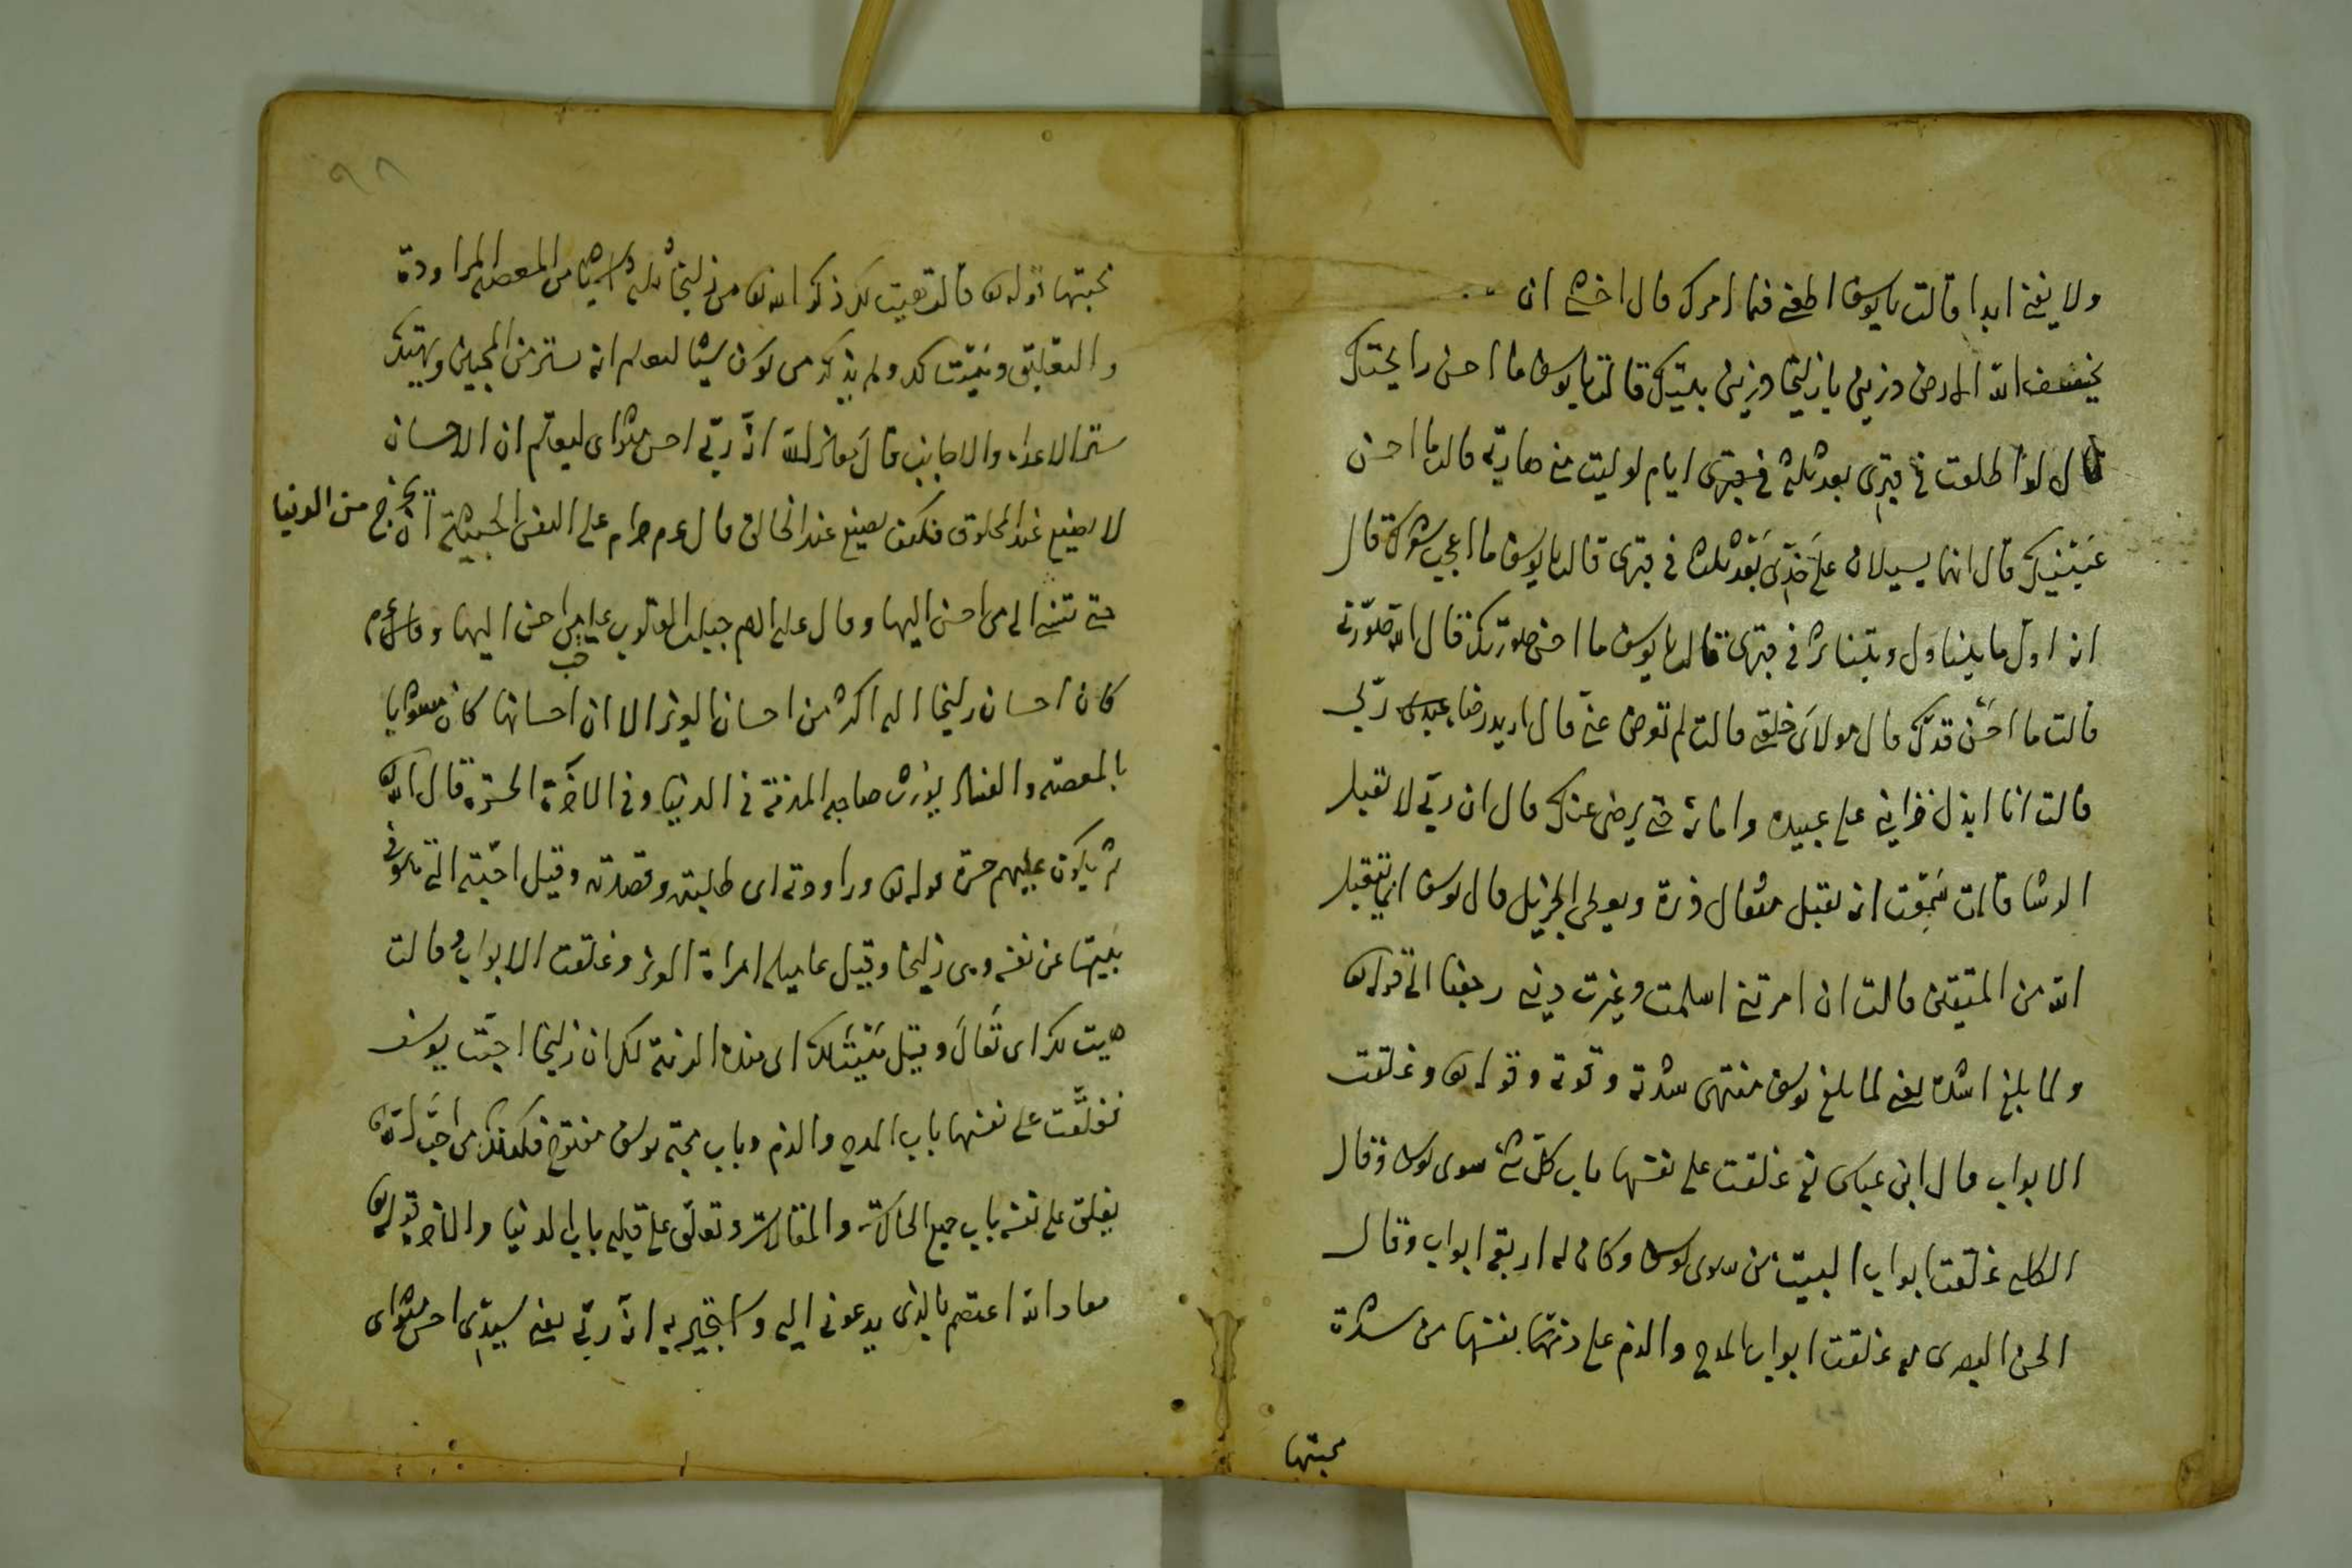 ولا يفنى ابدا قالت يا يوسف اطعنى فيما امرك قال اخشى ان
يخسف الله الارض وزينى يا زليخا وزينى بيتك قالت يا يوسف ما احسن رايحتك
قال لو اطلعت فى قبرى بعد ثلثه ايام لوليت منى هاربه قالت ما احسن
عينيك قال انهما يسيلان على خدى بعد ثلث فى قبرى قالت يا يوسف ما اعجب شعرك قال
انه اول ما يتناثر فى قبرى قالت يا يوسف ما احسن صورتك قال الله صورنى
قالت ما احسن قدك قال مولاى خلقنى قالت لم تعرض عنى قال اريد رضا ربى
قالت انا ابذل خزاينى على عبيده وامائه حتى يرضى عنك قال ان ربى لا تقبل
الرشا قالت سمعت انه يقبل مثقال ذرة ويعطى الجزيل قال يوسف انما يتقبل
الله من المتقين قالت ان امرتنى اسلمت وغيرت دينى رجعنا الى قوله تع
ولما بلغ اشده يعنى لما بلغ يوسف منتهى شدته وقوته وقوله تع وغلقت
الابواب قال ابن عباس يعنى غلقت على نفسها باب كل شئ سوى يوسف وقال
الكلبى غلقت ابواب البيت من سوى يوسف وكان له اربعة ابواب وقال
الحسن البصرى غلقت ابواب المدح والذم على نفسها من شدة
محبتها
٩٨
محبتها قوله تع قالت هيت لك ذكر الله تع من زليخا ثلثه اشيا من المعصية المراودة
والتغليق وهيت لك ولم يذكر من يوسف شيئا ليعلم انه ستر من المحبين ويهتك
ستر الاعداء والاجانب قال معاذ الله انه ربى احسن مثواى ليعلم ان الاحسان
لا يضيع عند المخلوق فكيف يضيع عند الخالق قال عم حرام على النفس الخبيثة ان تخرج من الدنيا
حتى تسئ الى من احسن اليها وقال عليه السلام جبلت القلوب على حب من احسن اليها
كان احسان زليخا اليه اكثر من احسان العزيز الا ان احسانها كان مشوبا
بالمعصية والفساد يورث صاحبه المذمة فى الدنيا وفى الآخرة الحسرة قال الله تع
ثم يكون عليهم حسرة قوله تع وراودته اى طلبته وقصدته وقيل احبته التى هو فى
بيتها عن نفسه وهى زليخا وقيل امراة العزيز وغلقت الابواب وقالت
هيت لك اى تعال وقيل هيئت لك ان زليخا احبت يوسف
فغلقت على نفسها باب المدح والذم وباب محبة يوسف مفتوح فكذلك من احب الله تع
يغلق على نفسه باب جميع الحركات والمقالات وتعلق على قلبه باب الدنيا والآخرة قوله تع
معاذ الله اعتصم بالذى يدعونى اليه واستجير به انه ربى يعنى سيدى احسن مثواى